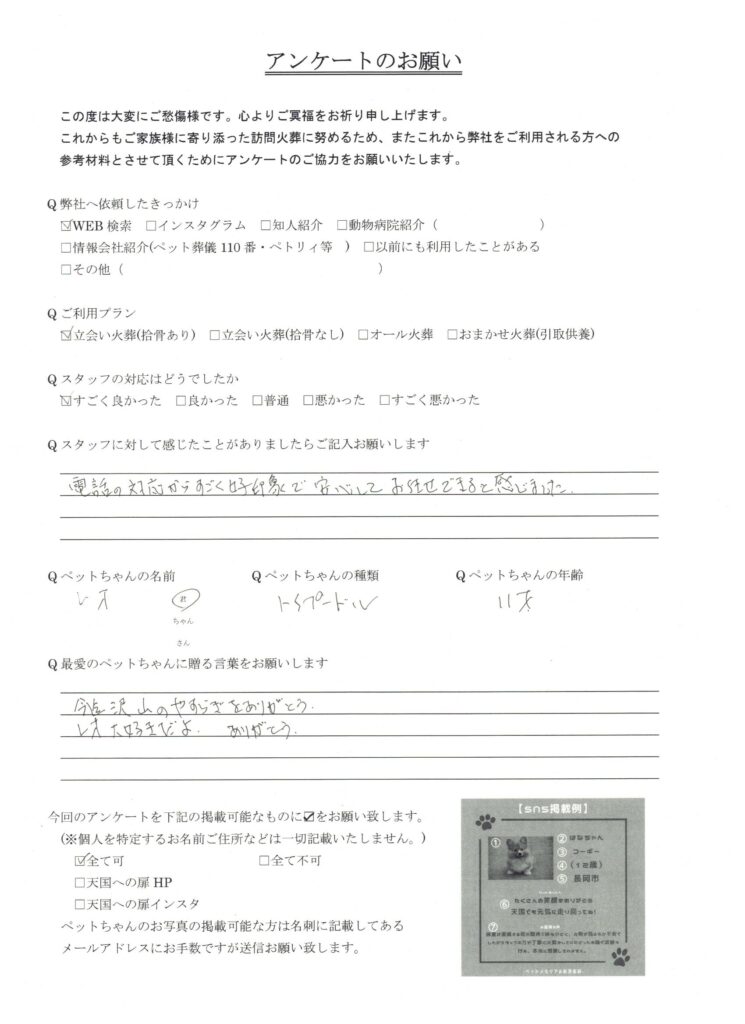 アンケートのお願い
この度は大変にご愁傷様です。心よりご冥福をお祈り申し上げます。
これからもご家族様に寄り添った訪問火葬に努めるため、またこれから弊社をご利用される方への
参考材料とさせて頂くためにアンケートのご協力をお願いいたします。
Q 弊社へ依頼したきっかけ
☑WEB 検索 □インスタグラム □知人紹介 □動物病院紹介( )
□情報会社紹介(ペット葬儀 110 番・ペトリィ等 ) □以前にも利用したことがある
□その他( )
Q ご利用プラン
☑立会い火葬(拾骨あり) □立会い火葬(拾骨なし) □オール火葬 □おまかせ火葬(引取供養)
Q スタッフの対応はどうでしたか
☑すごく良かった □良かった □普通 □悪かった □すごく悪かった
Q スタッフに対して感じたことがありましたらご記入お願いします
電話の対応からすごく好印象で安心してお任せできると感じました。
Q ペットちゃんの名前 Q ペットちゃんの種類 Q ペットちゃんの年齢
レオ 君 トイプードル 11才
ちゃん
さん
Q 最愛のペットちゃんに贈る言葉をお願いします
沢山のやすらぎをありがとう.
レオ大好きだよ. ありがとう.
今回のアンケートを下記の掲載可能なものに☑をお願い致します。
(※個人を特定するお名前ご住所などは一切記載いたしません。)
☑全て可 □全て不可
□天国への扉 HP
□天国への扉インスタ
ペットちゃんのお写真の掲載可能な方は名刺に記載してある
メールアドレスにお手数ですが送信お願い致します。
【sns掲載例】
① ② はなちゃん
③ コーギー
④ (12歳)
⑤ 長岡市
⑥ たくさんの笑顔をありがとう
天国でも元気に走り回ってね!
⑦